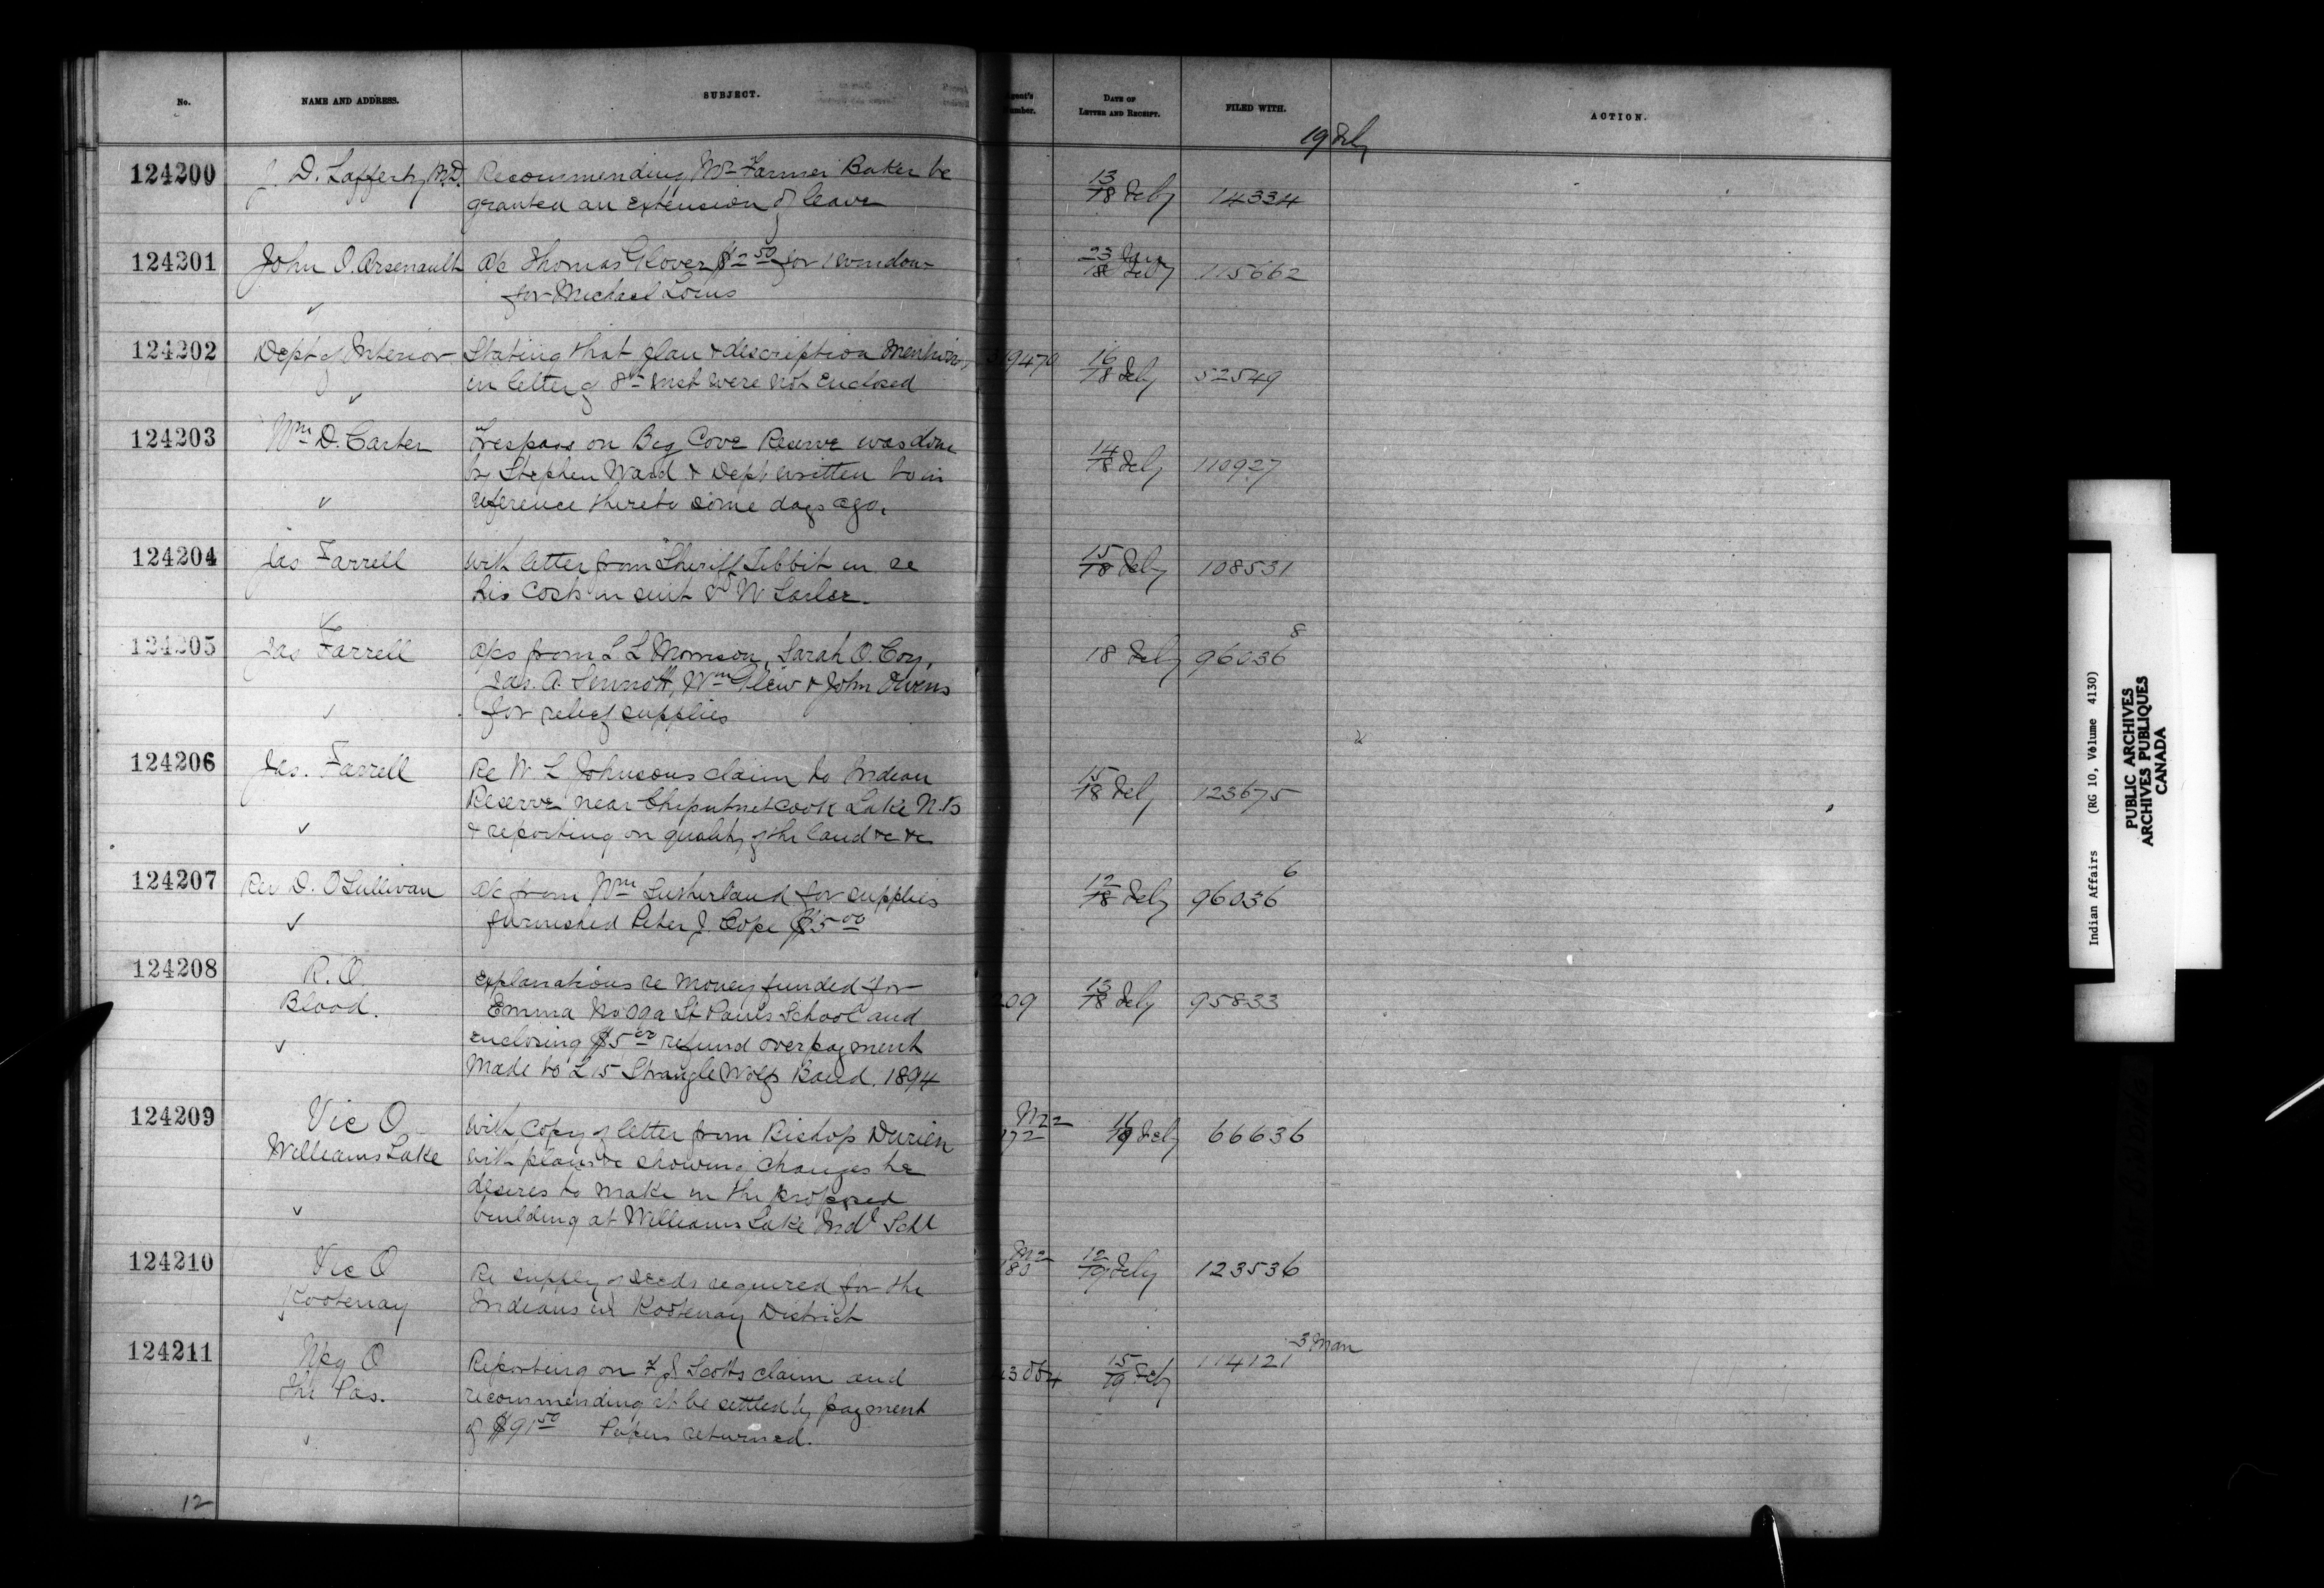 No. NAME AND ADDRESS. SUBJECT. Agent's Number. DATE OF LETTER AND RECEIPT. FILED WITH. ACTION.
19 Feby
124200 J. D. Lafferty M.D. Recommending Mr Farmer Baker be 13/18 Feby 14334
granted an extension of leave
124201 John O. Arsenault a/c Thomas Glover $2 50 for 1 window 23 Jan/18 Feby 115662
for Michael Louis
124202 Dept of Interior Stating that plan & description mention 319470 16/18 Feby 52549
in letter of 8th inst were not enclosed
124203 Wm D. Carter Trespass on Big Cove Reserve was done 14/18 Feby 110927
by Stephen Ward & Dept written to in
reference thereto some days ago.
124204 Jas Farrell With letter from Sheriff Tibbit in re 15/18 Feby 108531
his costs in suit vs W
124205 Jas Farrell a/cs from L L Morrison, Sarah O. Coy, 18 Feby 96036 8
Jas. A. Sennott, Wm Glew & John Owens
for relief supplies
124206 Jas. Farrell Re W L Johnsons claim to Indian 15/18 Feby 123675
Reserve near Chiputneticook Lake N.B
& reporting on quality of the land &c &c
124207 Rev D. O'Sullivan a/c from Wm Sutherland for supplies 12/18 Feby 96036 6
furnished Peter J. Cope $5 00
124208 R. O. Explanations re money funded for
Blood. Emma St Pauls School and 209 13/18 Feby 95833
enclosing $5 00 refund overpayment
made to L 15 Strangle Wolfs Band. 1894
124209 Vic O With copy of letter from Bishop Durieu M22 172 16/19 Feby 66636
Williams Lake With plans &c showing changes he
desires to make in the proposed
building at Williams Lake Indl Schl
124210 Vic O Re supply of seeds required for the 12/19 Feby 123536
Kootenay Indians in Kootenay District
124211 Wpg O Reporting on F J Scotts claim and 15/19 Feby 114121 3 Man
The Pas. recommending it be settled by payment
of $91 50 Papers returned.
12
Indian Affairs (RG 10, Volume 4130)
PUBLIC ARCHIVES
ARCHIVES PUBLIQUES
CANADA